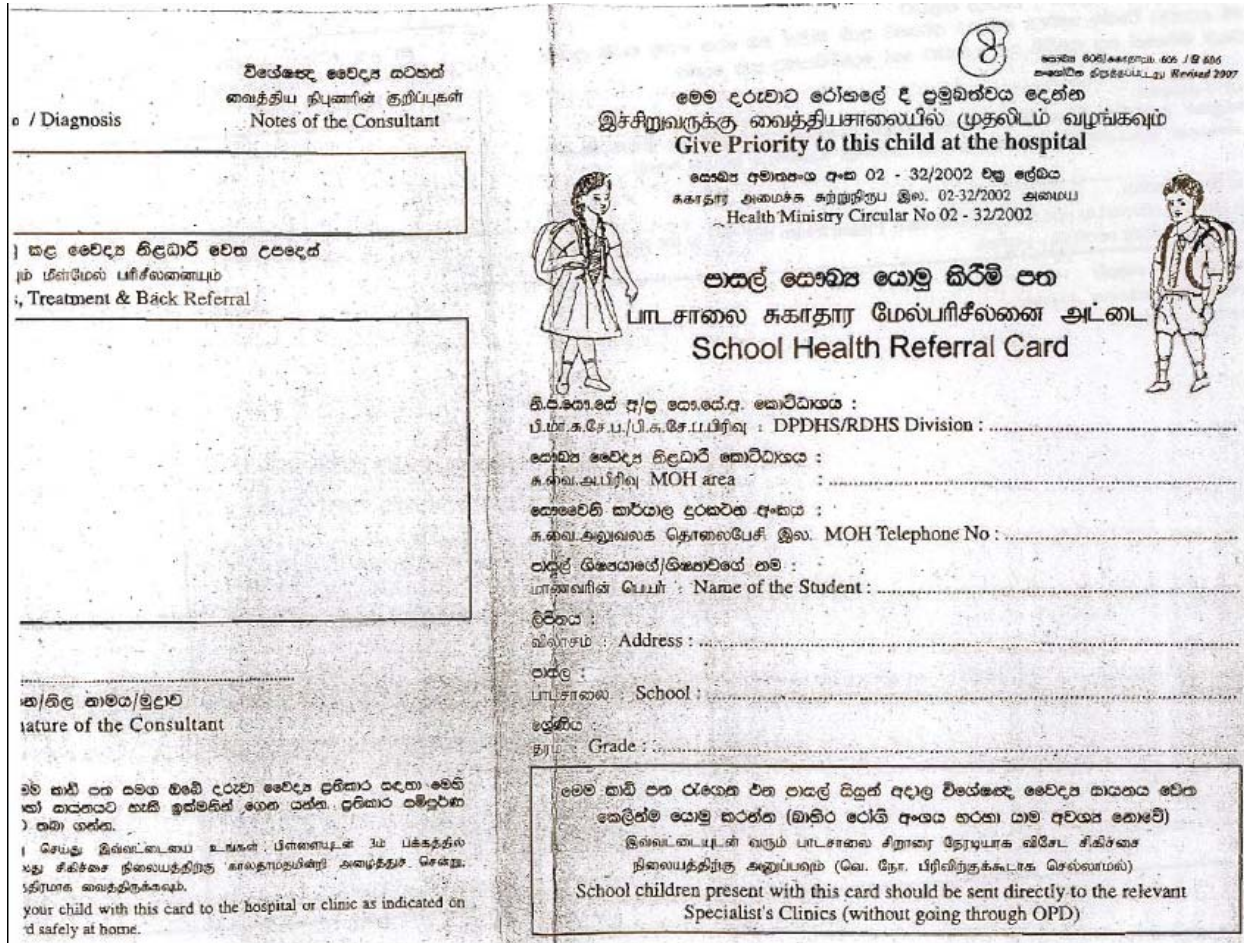 විශේෂඥ වෛද්‍ය සටහන්
வைத்திய நிபுணரின் குறிப்புகள்
Notes of the Consultant
/ Diagnosis
කළ වෛද්‍ය නිළධාරී වෙත උපදෙස්
மீள்மேல் பரிசீலனையும்
, Treatment & Back Referral
/නිල නාමය/මුද්‍රාව
nature of the Consultant
මෙම කාඩ් පත සමග ඔබේ දරුවා වෛද්‍ය ප්‍රතිකාර සඳහා මෙහි
සායනයට හැකි ඉක්මනින් ගෙන යන්න. ප්‍රතිකාර සම්පූර්ණ
තබා ගන්න.
செய்து இவ்வட்டையை உங்கள் பிள்ளையுடன் 3ம் பக்கத்தில்
சிகிச்சை நிலையத்திற்கு காலதாமதமின்றி அழைத்துச் சென்று,
வைத்திருக்கவும்.
your child with this card to the hospital or clinic as indicated on
safely at home.
8
සෞඛ්‍ය 606/சுகாதாரம் 606 / H 606
Revised 2007
මෙම දරුවාට රෝහලේ දී ප්‍රමුඛත්වය දෙන්න
இச்சிறுவருக்கு வைத்தியசாலையில் முதலிடம் வழங்கவும்
Give Priority to this child at the hospital
සෞඛ්‍ය අමාත්‍යංශ අංක 02 - 32/2002 චක්‍ර ලේඛය
சுகாதார அமைச்சு சுற்றுநிருப இல. 02-32/2002 அமைய
Health Ministry Circular No 02 - 32/2002
පාසල් සෞඛ්‍ය යොමු කිරීම් පත
பாடசாலை சுகாதார மேல்பரிசீலனை அட்டை
School Health Referral Card
නි.ප.සෞ.සේ අ/ප්‍රා සෞ.සේ.අ. කොට්ඨාශය :
பி.மா.சு.சே.ப./பி.சு.சே.ப.பிரிவு : DPDHS/RDHS Division :
සෞඛ්‍ය වෛද්‍ය නිළධාරී කොට්ඨාශය :
சு.வை.அ.பிரிவு MOH area :
සෞවෛනි කාර්යාල දුරකථන අංකය :
சு.வை.அலுவலக தொலைபேசி இல. MOH Telephone No :
පාසල් ශිෂ්‍යයාගේ/ශිෂ්‍යාවගේ නම :
மாணவரின் பெயர் : Name of the Student :
ලිපිනය :
விலாசம் : Address :
පාසල :
பாடசாலை : School :
ශ්‍රේණිය :
தரம் : Grade :
මෙම කාඩ් පත රැගෙන එන පාසල් සිසුන් අදාල විශේෂඥ වෛද්‍ය සායනය වෙත
කෙලින්ම යොමු කරන්න (බාහිර රෝගී අංශය හරහා යාම අවශ්‍ය නොවේ)
இவ்வட்டையுடன் வரும் பாடசாலை சிறாரை நேரடியாக விசேட சிகிச்சை
நிலையத்திற்கு அனுப்பவும் (வெ. நோ. பிரிவிற்குக்கூடாக செல்லாமல்)
School children present with this card should be sent directly to the relevant
Specialist's Clinics (without going through OPD)